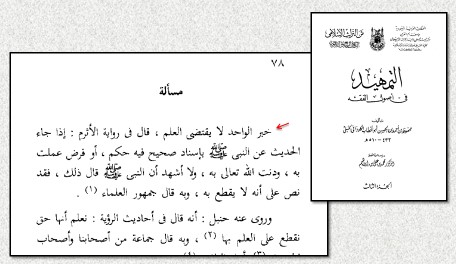 التمهيد
في أصول الفقه
الجزء الثالث
٧٨
مسألة
خبر الواحد لا يقتضى العلم ، قال فى رواية الأثرم : إذا جاء
الحديث عن النبى ﷺ بإسناد صحيح فيه حكم ، أو فرض عملت
به ، ودنت الله تعالى به ، ولا أشهد أن النبى ﷺ قال ذلك ، فقد
نص على أنه لا يقطع به ، وبه قال جمهور العلماء (١) .
وروى عنه حنبل : أنه قال فى أحاديث الرؤية : نعلم أنها حق
نقطع على العلم بها (٢) ، وبه قال جماعة من أصحابنا وأصحاب